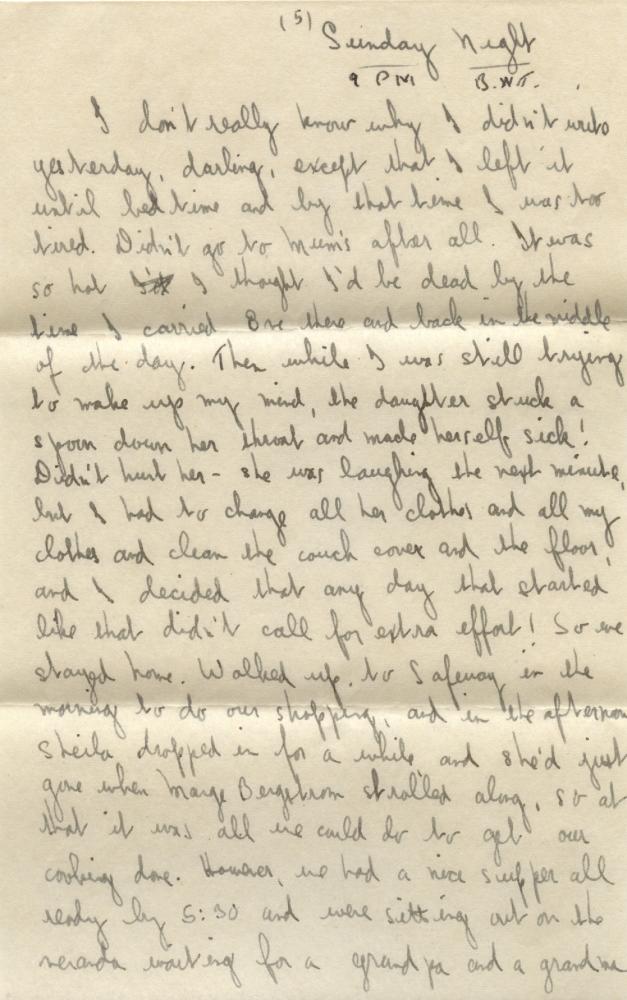 (5)
Sunday Night
9 PM B.W.T.
I don't really know why I didn't write
yesterday, darling, except that I left it
until bed time and by that time I was too
tired. Didn't go to Mum's after all. It was
so hot I thought I'd be dead by the
time I carried Bre there and back in the middle
of the day. Then while I was still trying
to make up my mind, the daughter stuck a
spoon down her throat and made herself sick!
Didn't hurt her - she was laughing the next minute,
but I had to change all her clothes and all my
clothes and clean the couch cover and the floor,
and I decided that any day that started
like that didn't call for extra effort! So we
stayed home. Walked up to Safeway in the
morning to do our shopping, and in the afternoon
Sheila dropped in for a while and she'd just
gone when Marge Bergstrom strolled along, so at
that it was all we could do to get our
cooking done. However, we had a nice supper all
ready by 5:30 and were sitting out on the
veranda waiting for a grandpa and a grandma